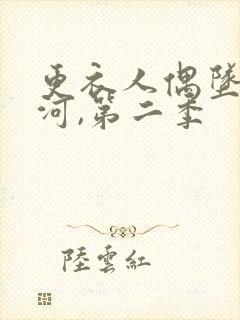 更衣人偶墜
河,第二季
陸雲紅